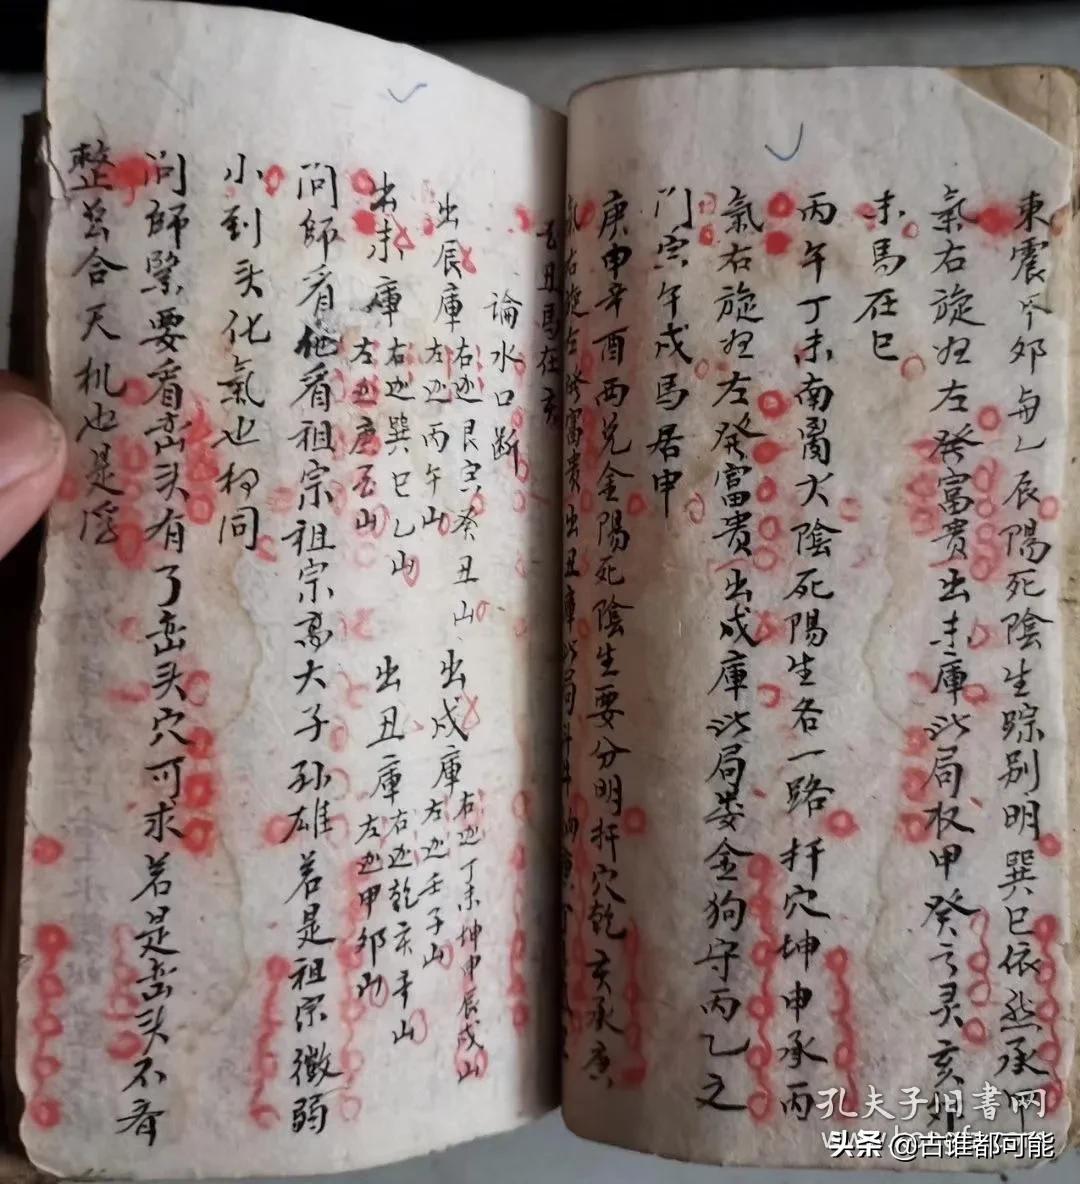 東震甲卯与乙辰陽死陰生踪别明巽巳依然承甲
氣右旋左癸富貴出未庫此局板甲癸灵亥卯
未馬在巳
丙午丁未南离火陰死陽生各一路扦穴坤申承丙
氣右旋左癸富貴出戍庫此局娄金狗守丙乙之
门寅午戍馬居申
庚申辛酉西兑金陽死陰生要分明扦穴乾亥承庚
氣右旋左癸富貴出丑庫此局
丑馬在亥
論水口断
出辰庫 右边艮寅癸丑山 左边丙午山 出戍庫 右边丁未坤申辰戍山 左边壬子山
出未庫 右边巽巳乙山 左边庚酉山 出丑庫 右边乾亥辛山 左边甲卯山
问師看他看祖宗祖宗高大子孙雄若是祖宗微弱
小到头化氣也相同
问師緊要看峦头有了峦头穴可求若是峦头不看
整益合天机也是浮
孔夫子旧书网
头条 @古谁都可能